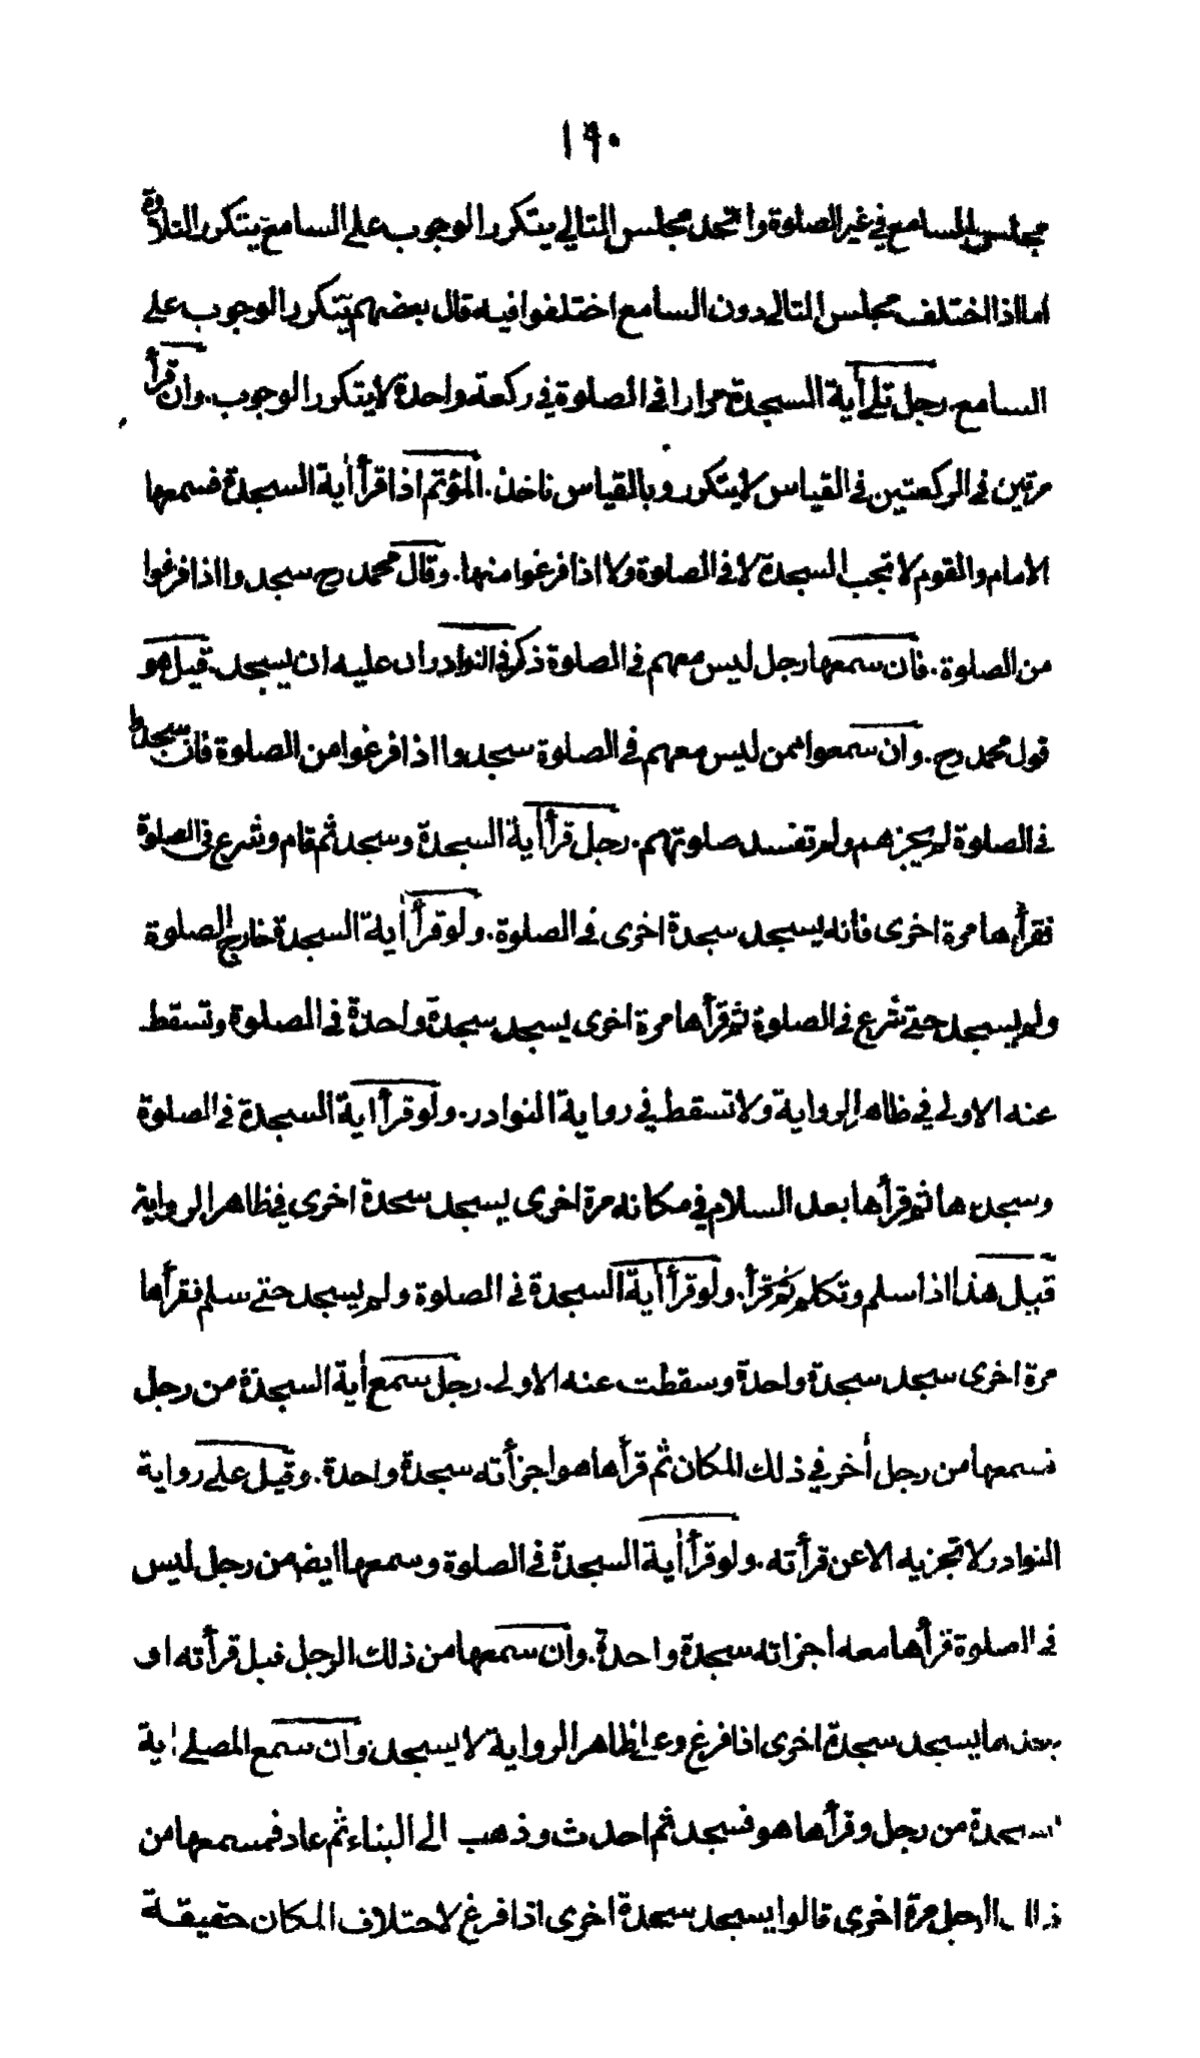 ١٩٠
مجلس السامع في غير الصلوة واتحد مجلس التالي يتكرر الوجوب على السامع يتكرر التلاوة
اما اذا اختلف مجلس التالي دون السامع اختلفوا فيه قال بعضهم يتكرر الوجوب على
السامع. رجل تلى أية السجدة مرارا في الصلوة في ركعة واحدة لا يتكرر الوجوب. وان قرأ
مرتين في الركعتين في القياس لا يتكرر وبالقياس ناخذ. المؤتم اذا قرأ أية السجدة فسمعها
الامام والقوم لا تجب السجدة لا في الصلوة ولا اذا فرغوا منها. وقال محمد رح سجدوا اذا فرغوا
من الصلوة. فان سمعها رجل ليس معهم في الصلوة ذكر في النوادر ان عليه ان يسجد. قيل هو
قول محمد رح. وان سمعوا ممن ليس معهم في الصلوة سجدوا اذا فرغوا من الصلوة فان سجدوا
في الصلوة لم يجزهم ولم تفسد صلوتهم. رجل قرأ أية السجدة وسجد ثم قام وشرع في الصلوة
فقرأها مرة اخرى فانه يسجد سجدة اخرى في الصلوة. ولو قرأ أية السجدة خارج الصلوة
ولم يسجد حتى شرع في الصلوة ثم قرأها مرة اخرى يسجد سجدة واحدة في الصلوة وتسقط
عنه الاولى في ظاهر الرواية ولا تسقط في رواية النوادر. ولو قرأ اية السجدة في الصلوة
وسجدها ثم قرأها بعد السلام في مكانه مرة اخرى يسجد سجدة اخرى في ظاهر الرواية
قيل هذا اذا سلم وتكلم ثم قرأ. ولو قرأ أية السجدة في الصلوة ولم يسجد حتى سلم فقرأها
مرة اخرى سجد سجدة واحدة وسقطت عنه الاولى. رجل سمع أية السجدة من رجل
فسمعها من رجل أخر في ذلك المكان ثم قرأها هو اجزأته سجدة واحدة. وقيل على رواية
النوادر لا تجزيه الا عن قرأته. ولو قرأ أية السجدة في الصلوة وسمعها ايضا من رجل ليس
في الصلوة قرأها معه اجزاته سجدة واحدة. وان سمعها من ذلك الرجل قبل قرأته او
بعدها يسجد سجدة اخرى اذا فرغ وعلى ظاهر الرواية لا يسجد. وان سمع المصلى اية
السجدة من رجل وقرأها هو فسجد ثم احدث وذهب الى البناء ثم عاد فسمعها من
ذلك الرجل مرة اخرى قالوا يسجد سجدة اخرى اذا فرغ لاختلاف المكان حقيقة